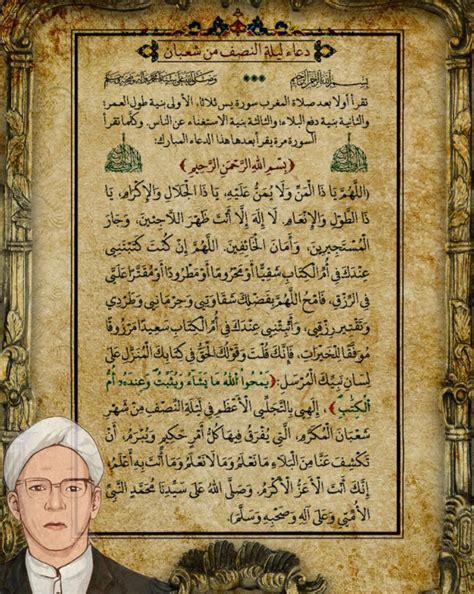 دعاء ليلة النصف من شعبان
بِسْمِ اللهِ الرَّحْمٰنِ الرَّحِيْمِ
تقرأ أولا بعد صلاة المغرب سورة يس ثلاثا، الأولى بنية طول العمر؛
والثانية بنية دفع البلاء؛ والثالثة بنية الاستغناء عن الناس. وكلما تقرأ
السورة مرة يقرأ بعدها هذا الدعاء المبارك:
﴿بِسْمِ اللهِ الرَّحْمَنِ الرَّحِيْمِ﴾
(اَللّٰهُمَّ يَا ذَا الْمَنِّ وَلَا يُمَنُّ عَلَيْهِ، يَا ذَا الْجَلَالِ وَالْإِكْرَامِ، يَا
ذَا الطَّوْلِ وَالْإِنْعَامِ. لَا إِلٰهَ إِلَّا أَنْتَ ظَهْرَ اللَّاجِئِيْنَ، وَجَارَ
الْمُسْتَجِيْرِيْنَ، وَأَمَانَ الْخَائِفِيْنَ. اللّٰهُمَّ إِنْ كُنْتَ كَتَبْتَنِيْ
عِنْدَكَ فِيْ أُمِّ الْكِتَابِ شَقِيًّا أَوْ مَحْرُوْمًا أَوْ مَطْرُوْدًا أَوْ مُقَتَّرًا عَلَيَّ
فِي الرِّزْقِ، فَامْحُ اللّٰهُمَّ بِفَضْلِكَ شَقَاوَتِيْ وَحِرْمَانِيْ وَطَرْدِيْ
وَتَقْتِيْرَ رِزْقِيْ، وَأَثْبِتْنِيْ عِنْدَكَ فِيْ أُمِّ الْكِتَابِ سَعِيْدًا مَرْزُوْقًا
مُوَفَّقًا لِلْخَيْرَاتِ، فَإِنَّكَ قُلْتَ وَقَوْلُكَ الْحَقُّ فِيْ كِتَابِكَ الْمُنَزَّلِ عَلَى
لِسَانِ نَبِيِّكَ الْمُرْسَلِ: ﴿يَمْحُوا اللهُ مَا يَشَاءُ وَيُثْبِتُ وَعِنْدَهُ أُمُّ
الْكِتٰبِ﴾، إِلٰهِيْ بِالتَّجَلِّي الْأَعْظَمِ فِيْ لَيْلَةِ النِّصْفِ مِنْ شَهْرِ
شَعْبَانَ الْمُكَرَّمِ، الَّتِيْ يُفْرَقُ فِيْهَا كُلُّ أَمْرٍ حَكِيْمٍ وَيُبْرَمُ، أَنْ
تَكْشِفَ عَنَّا مِنَ الْبَلَاءِ مَا نَعْلَمُ وَمَا لَا نَعْلَمُ وَمَا أَنْتَ بِهِ أَعْلَمُ
إِنَّكَ أَنْتَ الْأَعَزُّ الْأَكْرَمُ. وَصَلَّى اللهُ عَلَى سَيِّدِنَا مُحَمَّدٍ النَّبِيِّ
الْأُمِّيِّ وَعَلَى آلِهِ وَصَحْبِهِ وَسَلَّمَ).